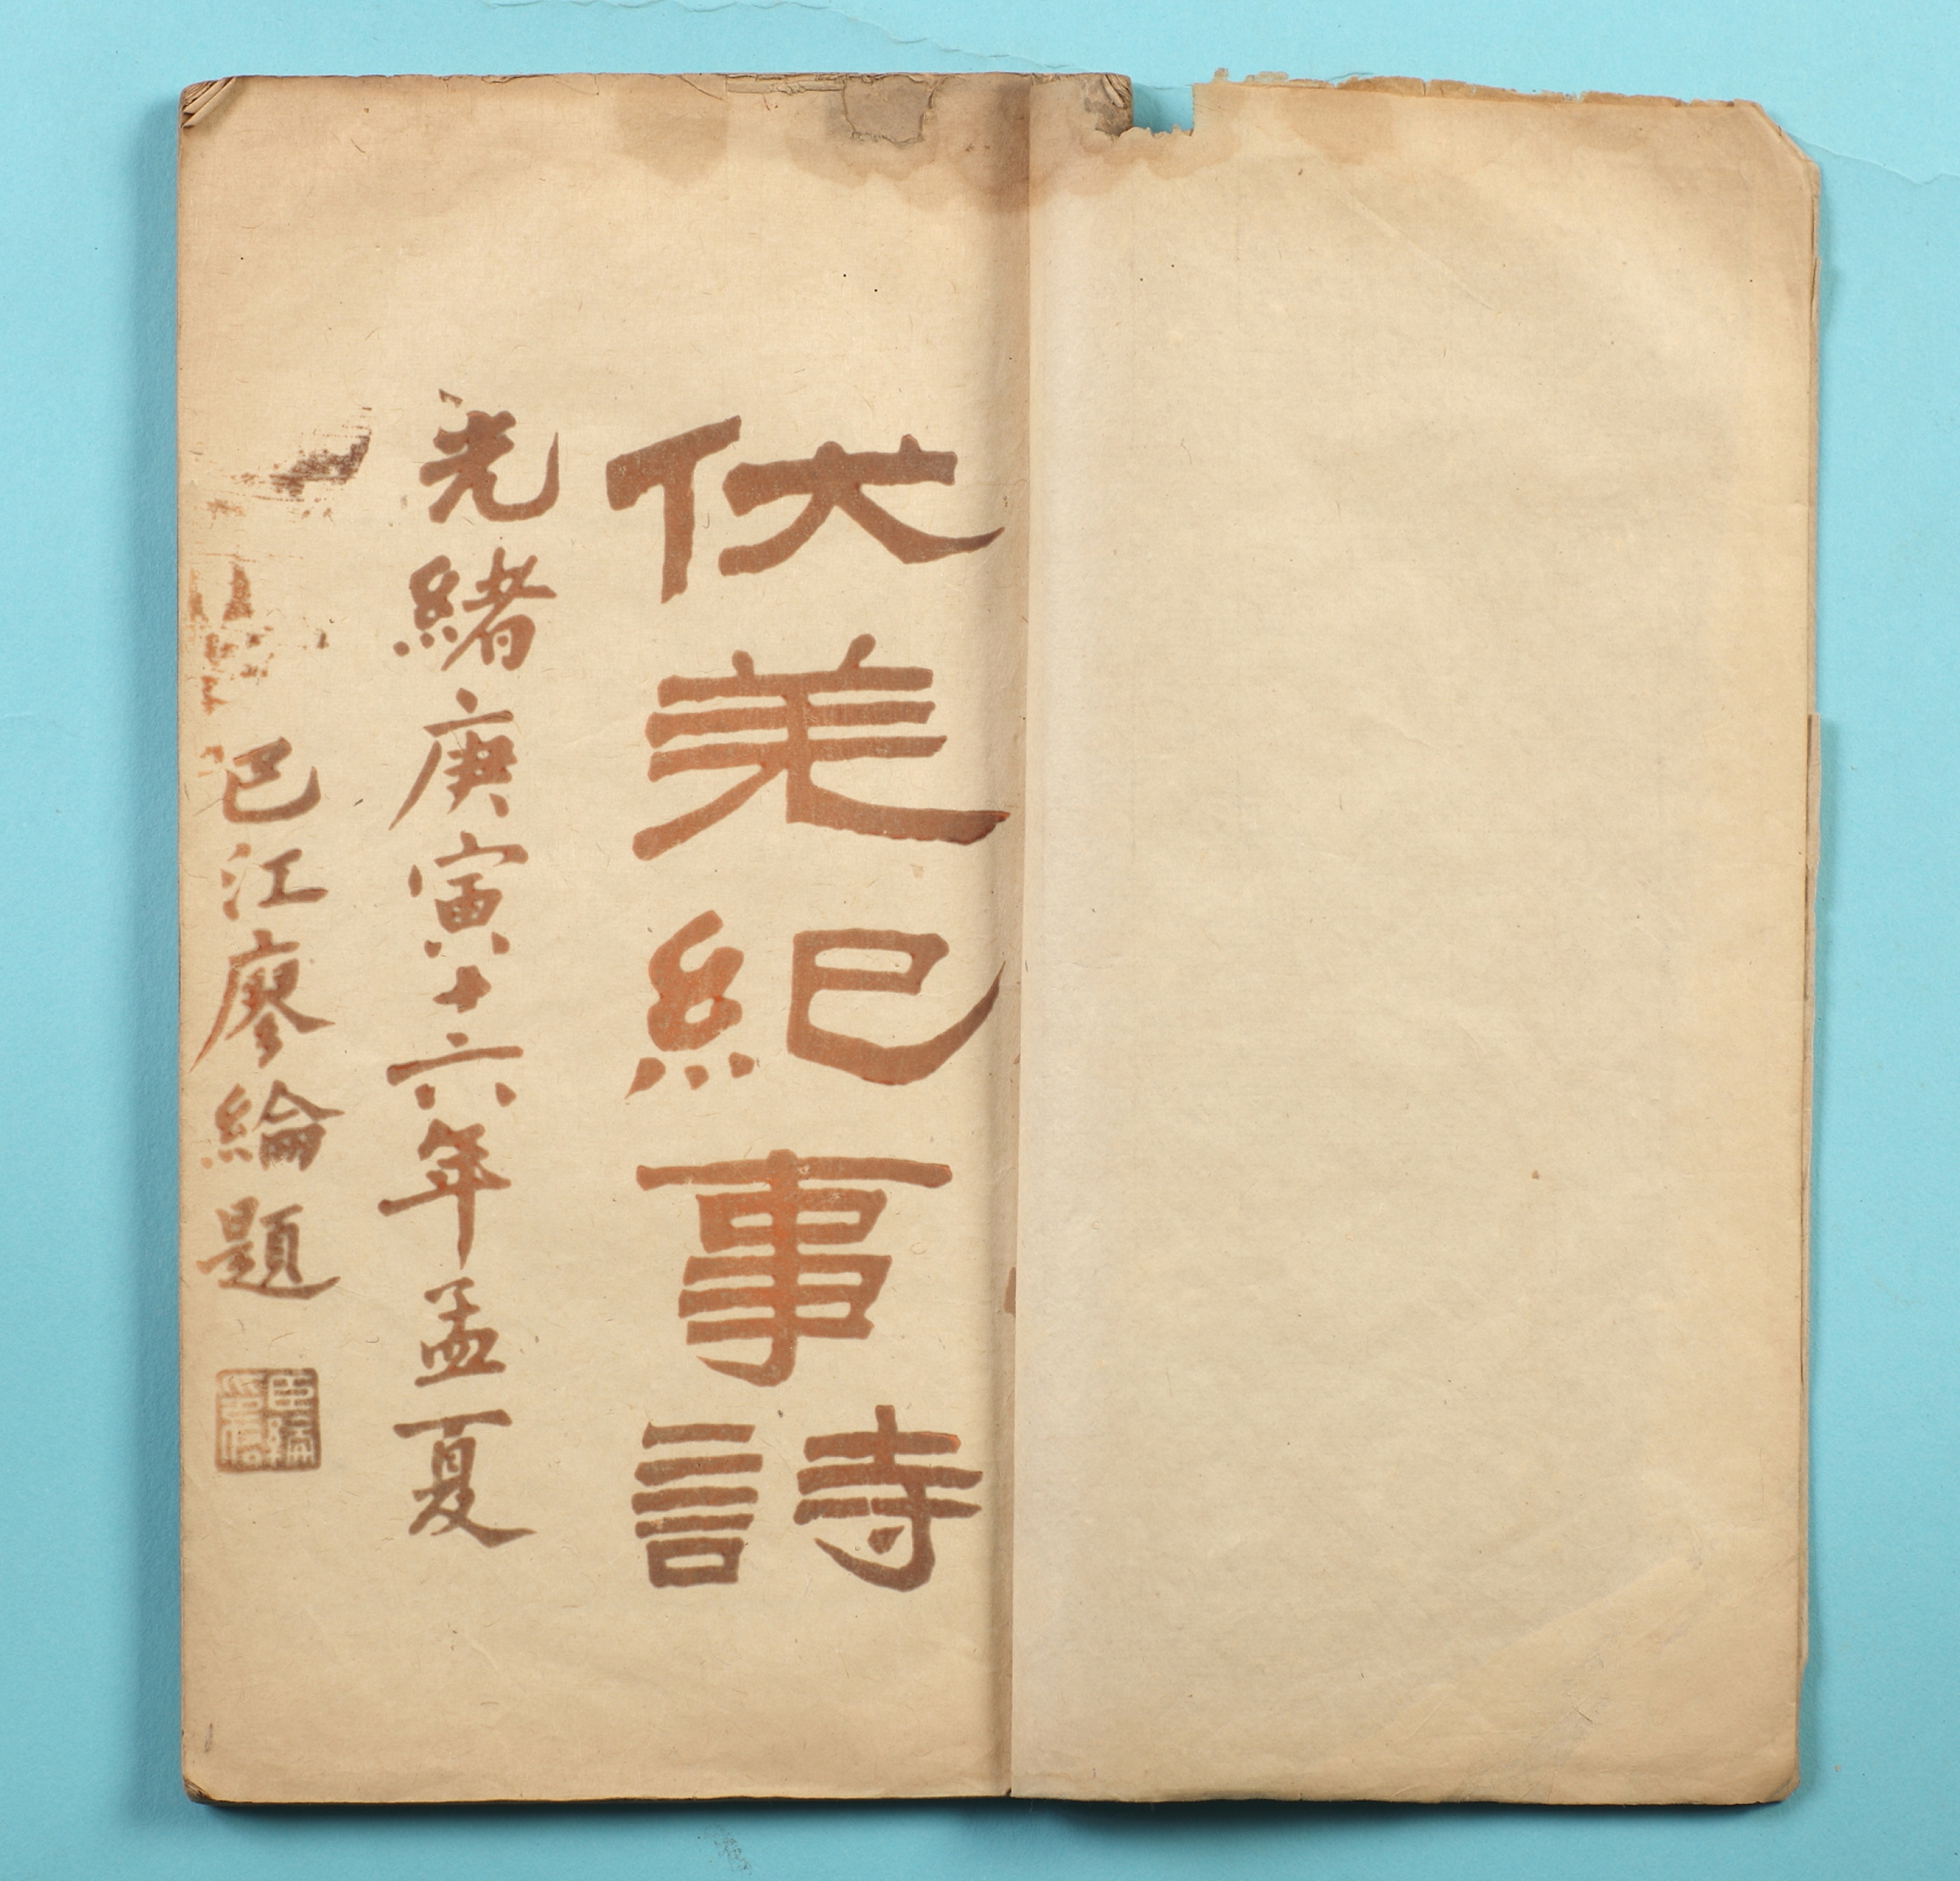 伏羌紀事詩
光緒庚寅十六年孟夏
巴江廖綸題
臣綸印信